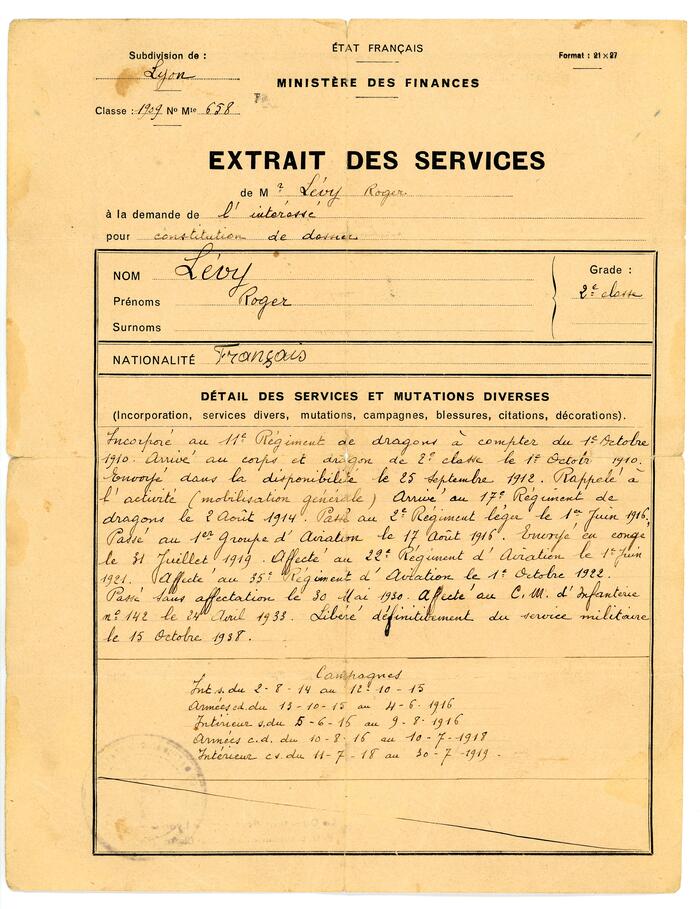 Subdivision de :
Lyon
Classe : 1909 No Mle 658
ÉTAT FRANÇAIS
MINISTÈRE DES FINANCES
Format : 21 × 27
EXTRAIT DES SERVICES
de Mr Lévy Roger
à la demande de l'intéréssé
pour constitution de dossier
NOM Lévy
Prénoms Roger
Surnoms
Grade :
2e classe
NATIONALITÉ Français
DÉTAIL DES SERVICES ET MUTATIONS DIVERSES
(Incorporation, services divers, mutations, campagnes, blessures, citations, décorations).
Incorporé au 11e Régiment de dragons à compter du 1er Octobre
1910. Arrivé au corps et dragon de 2e classe le 1er Octobr 1910.
Envoyé dans la disponibilité le 25 Septembre 1912. Rappelé à
l'activité (mobilisation générale) Arrivé au 17e Régiment de
dragons le 2 Août 1914. Passé au 2e Régiment léger le 1er Juin 1916.
Passé au 1er Groupe d'Aviation le 17 Août 1916. Envoyé en congé
le 31 Juillet 1919. Affecté au 22e Régiment d'Aviation le 1er Juin
1921. Affecté au 35e Régiment d'Aviation le 1er Octobre 1922.
Passé sans affectation le 30 Mai 1930. Affecté au C.M. d'Infanterie
no 142 le 24 Avril 1933. Libéré définitivement du service militaire
le 15 Octobre 1938.
Campagnes
Int s. du 2-8-14 au 12-10-15
Armées cd. du 13-10-15 au 4-6-1916
Intérieur s. du 5-6-16 au 9-8-1916
Armées c.d. du 10-8-16 au 10-7-1918
Intérieur c s. du 11-7-18 au 30-7-1919.